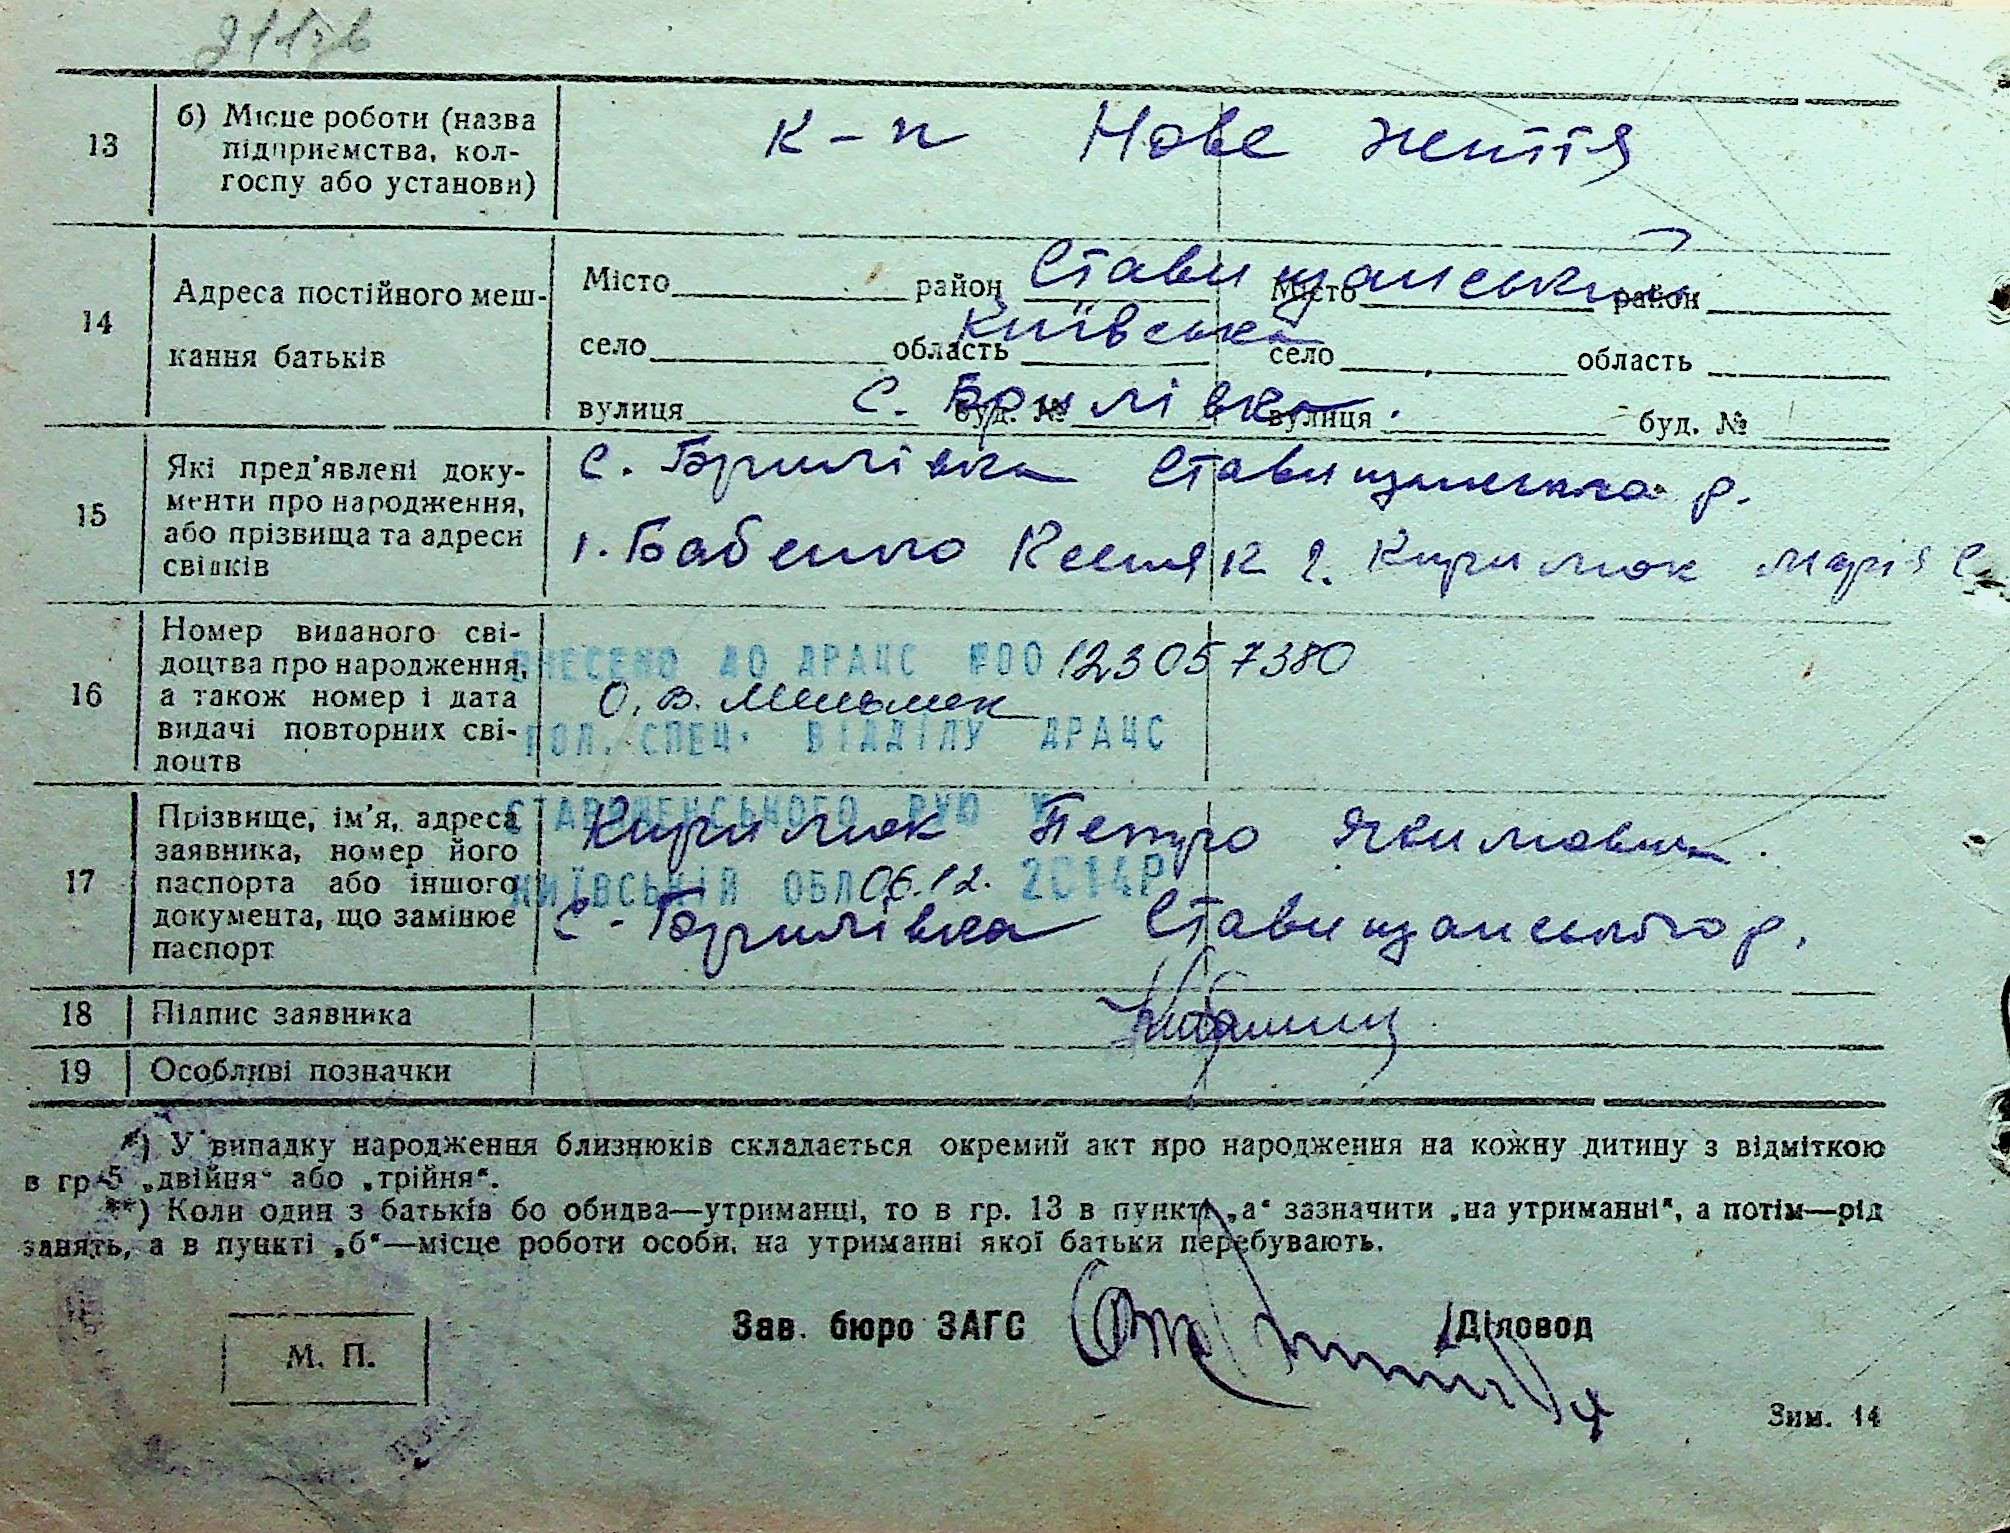 13
б) Місце роботи (назва
підприємства, кол-
госпу або установи)
к-п Нове життя
14
Адреса постійного меш-
кання батьків
Місто район Ставищанський Місто район
село область Київська село область
вулиця с. Брилівка буд. № вулиця буд. №
15
Які пред'явлені доку-
менти про народження,
або прізвища та адреси
свідків
с. Брилівка Ставищанського р.
1. Бабенко 2. Кирилюк Марія С.
16
Номер виданого сві-
доцтва про народження,
а також номер і дата
видачі повторних сві-
доцтв
ВНЕСЕНО ДО ДРАЦС №00123057380
О. В. Мельник
ГОЛ. СПЕЦ. ВІДДІЛУ ДРАЦС
17
Прізвище, ім'я, адреса
заявника, номер його
паспорта або іншого
документа, що замінює
паспорт
СТАВИЩЕНСЬКОГО РУЮ У
Кирилюк Петро Якимович.
КИЇВСЬКІЙ ОБЛ 06.12. 2014Р
с. Брилівка Ставищанського р.
18
Підпис заявника
19
Особливі позначки
*) У випадку народження близнюків складається окремий акт про народження на кожну дитину з відміткою
в гр 5 „двійня“ або „трійня“.
**) Коли один з батьків бо обидва—утриманці, то в гр. 13 в пункті „а“ зазначити „на утриманні“, а потім—рід
занять, а в пункті „б“—місце роботи особи, на утриманні якої батьки перебувають.
Зав. бюро ЗАГС Діловод
М. П.
Зим. 14